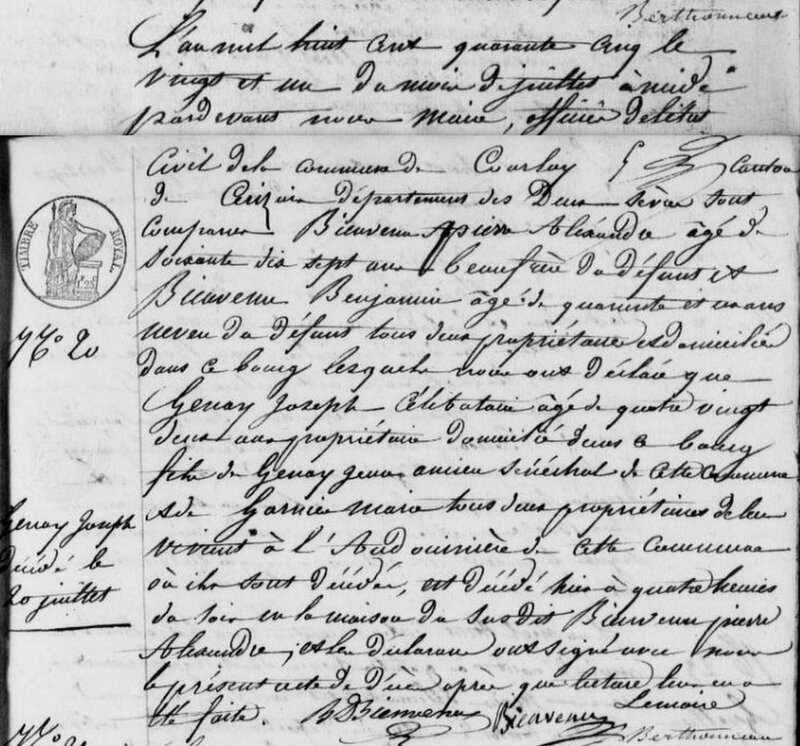 Berthonneau
L'an mil huit cent quarante cinq le
vingt et un du mois de juillet à midi
pardevant nous Maire, officier de l'état
civil de la commune de Courlay canton
de Cerizais département des Deux Sèvres sont
comparus Bienvenu pierre Alexandre âgé de
soixante dix sept ans beaufrère du défunt et
Bienvenu Benjamin âgé de quarante et un ans
neveu du défunt tous deux propriétaires et domiciliés
dans ce bourg lesquels nous ont déclaré que
Genay Joseph célibataire âgé de quatre vingt
deux ans propriétaire domicilié dans ce bourg
fils de Genay ancien sénéchal de cette commune
et de Garnier marie tous deux propriétaires de leur
vivant à l'Audouinière de cette commune
où ils sont décédés, est décédé hier à quatre heures
du soir en la maison du susdit Bienvenu pierre
Alexandre, et les déclarans ont signé avec nous
le présent acte de décès après que lecture leur en a
été faite. B Bienvenu Bienvenu Lemaire
Berthonneau
TIMBRE ROYAL
N.º 20
Genay Joseph
décédé le
20 juillet